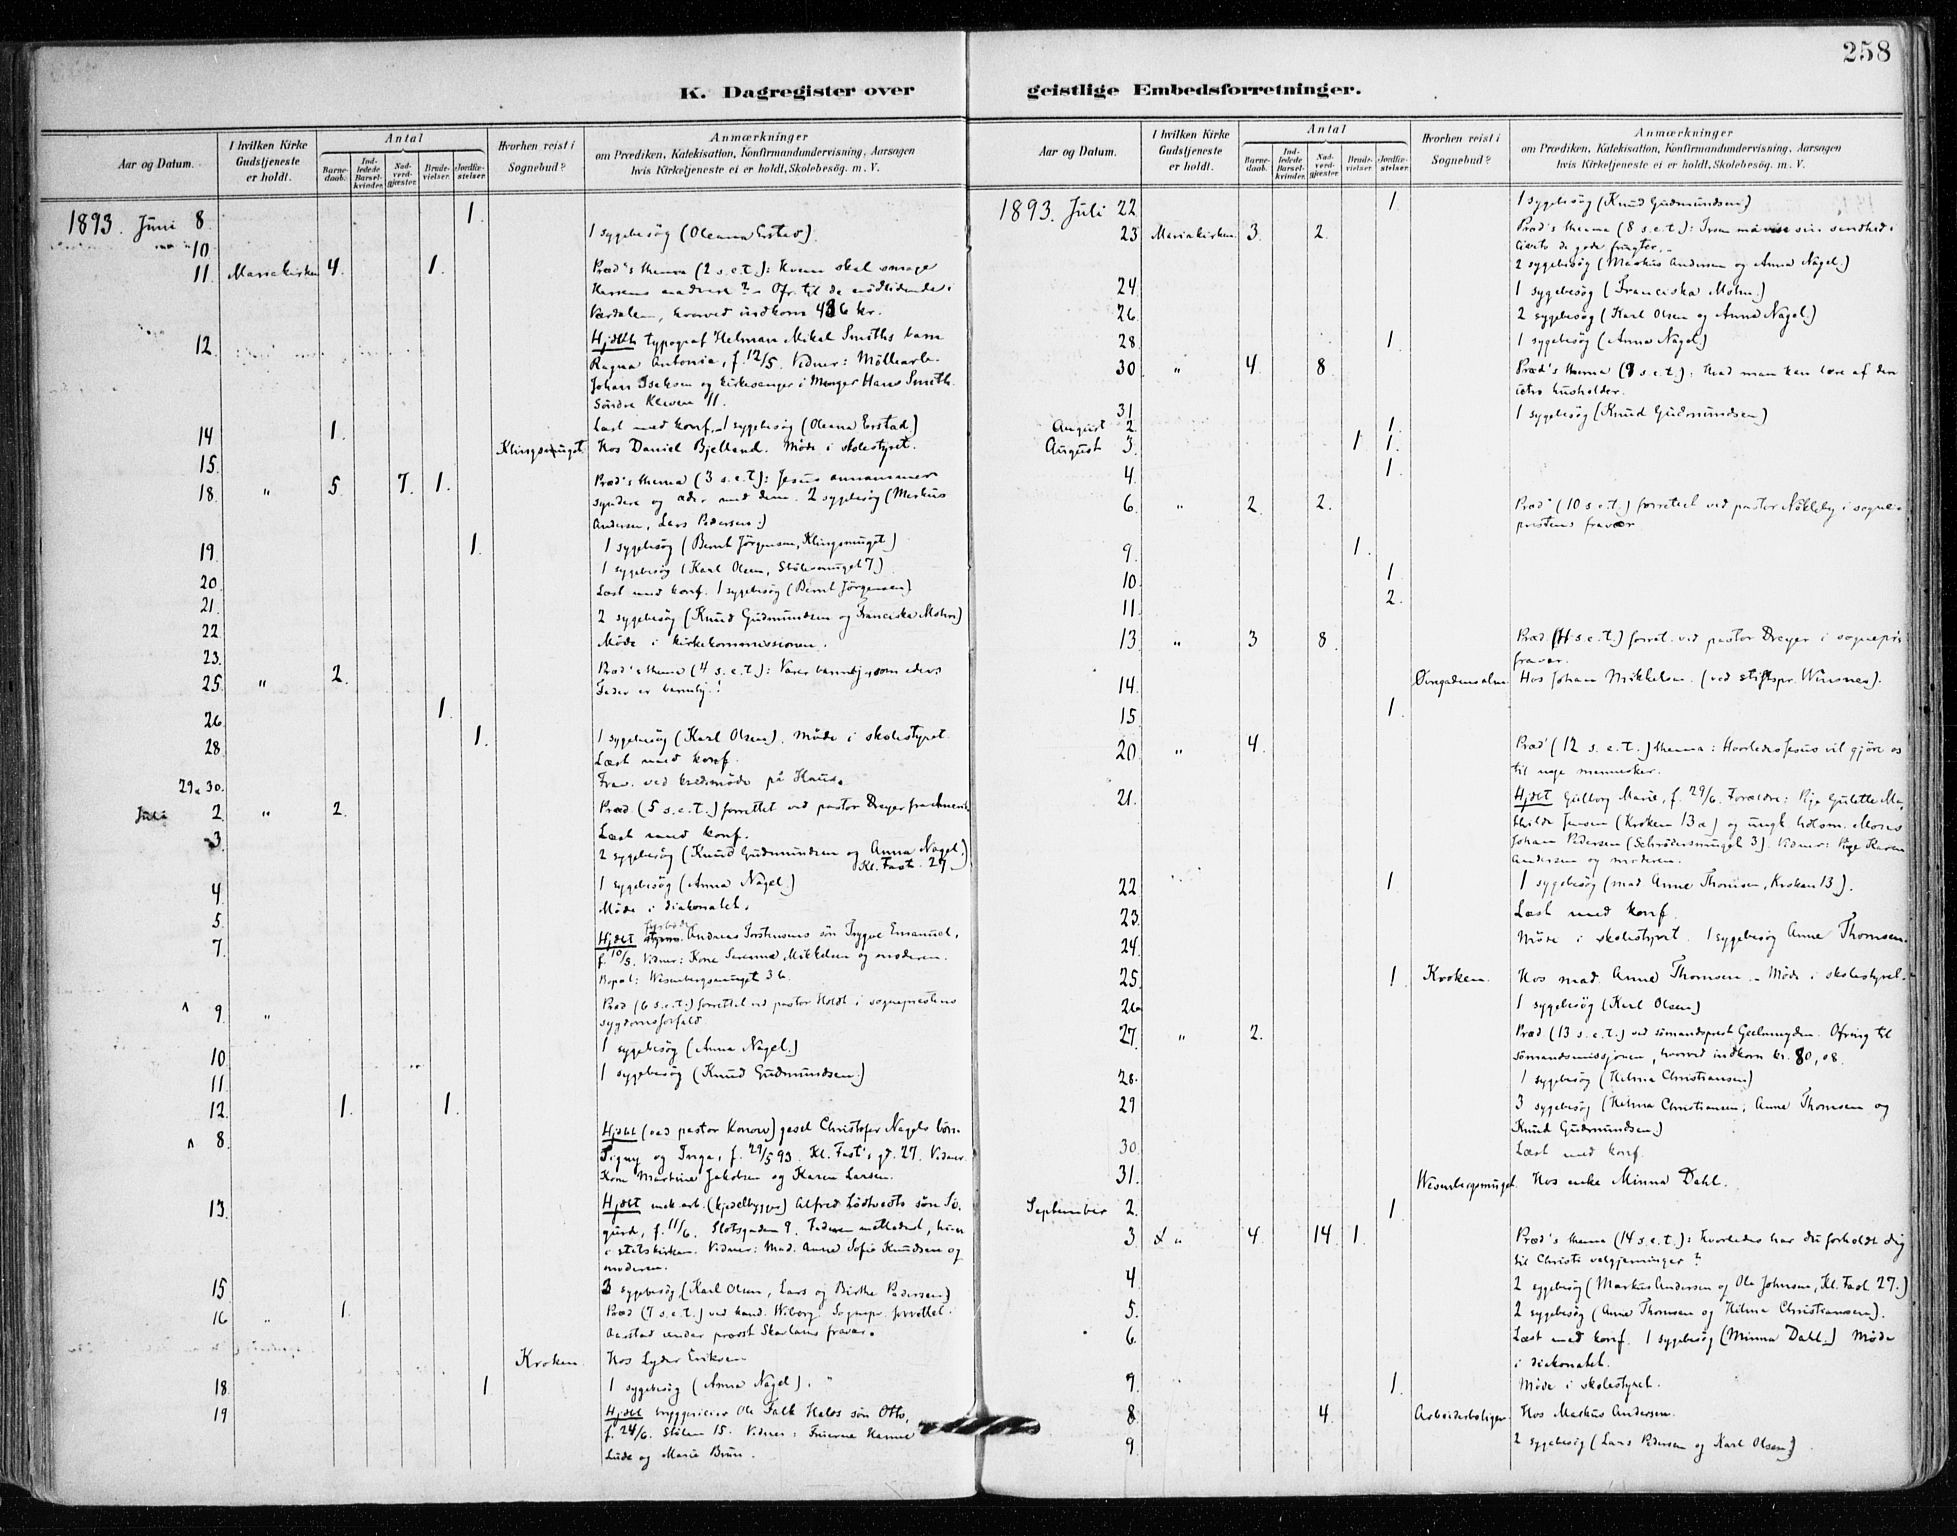 258
K. Dagregister over geistlige Embedsforretninger.
Aar og Datum.
I hvilken Kirke Gudstjeneste er holdt.
Antal
Barnedaab.
Indledede Barselkvinder.
Nadverdgjæster.
Brudevielser.
Jordfæstelser.
Hvorhen reist i Sognebud?
Anmærkninger
om Prædiken, Katekisation, Konfirmandundervisning, Aarsagen
hvis Kirketjeneste ei er holdt, Skolebesøg. m. V.
1893. Juni 8. 1.
10 1 sygebesög (Oleana Erstad).
11 Mariakirken 4. 1. Præd's thema (2 s. e. t.): Hvem skal smage
Herrens nadverd? - Ofr. til de nødlidende i
Værdalen, hvorved indkom 486 kr.
12 Hjdbt typograf Helman Mikal Smiths barn
Ragna Antonia, f. 12/5. Vidner: Möllearb.
Johan Isaksen og kirkesanger i Manger Hans Smith.
Söndre Kleven 11.
14 1. Læst med konf. - 1 sygebesög (Oleana Erstad)
15. Klingesmuget Hos Daniel Bjelland. Møde i skolestyret.
18. " 5 7. 1. Præd's thema (3 s. e. t.): Jesus annammer
syndere og æder med dem. 2 sygebesög (Markus
Andersen, Lars Pedersen.)
19. 1. 1 sygebesög (Bernt Jörgensen, Klingesmuget)
20 1 sygebesög (Karl Olsen, Stölesmuget 7)
21. Læst med konf. 1 sygebesög (Bernt Jörgensen)
22 2 sygebesög (Knud Gudmundsen og Franciska Mohn)
23. Møde i kirkekommissionen.
25. " 2. Præd's thema (4 s. e. t.): Værer barmhj. som eders
Fader er barmhj.!
26. 1.
28 1. 1 sygebesög (Karl Olsen). Møde i skolestyret.
Læst med konf.
29 & 30. Frav. ved kredsmøde på Haus.
Juli 2 " 2. Præd (5 s. e. t.) forrettet ved pastor Dreyer fra Amerik
3 Læst med konf.
2 sygebesög (Knud Gudmundsen og Anna Nagel.)
Kl. Fast. 27
4 1 sygebesög (Anna Nagel.)
5. Møde i diakonatet.
7. Hjdbt Andreas Torstensens sön Trygve Emanuel,
f. 10/5. Vidner: Kone Serenna Mikkelsen og moderen.
Bopæl: Wesenbergsmuget 36.
9. " Præd (6 s. e. t.) forrettet ved pastor Holdt i sogneprestens
sygdomsforfald.
10 1 sygebesög (Anna Nagel.)
11. 1 sygebesög (Knud Gudmundsen.)
12. 1. 1.
8. Hjdbt (ved pastor Konow) gesel Christofer Nagels börn
Signy og Inga, f. 29/5 93. Kl. Fast's gt. 27. Vidner:
Kone Martine Jakobsen og Karen Larsen.
13. Hjdbt mek. arb. (kjedelbygger) Alfred Lødtvedts søn Si-
gurd, f. 11/6. Slotsgaden 9. Faderen methodist, hun
i statskirken. Vidner: Mad. Anne Sofie Knudsen og
moderen.
15 3 sygebesög (Karl Olsen, Lars og Birthe Pedersen)
16 " 1. Præd (7 s. e. t.) ved kand. Wiborg. Sognepr. forrettet.
Aarstad under provst Skarlands fravær.
Kroken Hos Lyder Eriksen
18. 1 1 sygebesög (Anna Nagel).
19 Hjdbt bryggeieier Ole Falk Hales søn Otto,
f. 24/6. Stölen 15. Vidner: Frierne Hanne
Lude og Marie Brun.
Aar og Datum.
I hvilken Kirke Gudstjeneste er holdt.
Antal
Barnedaab.
Indledede Barselkvinder.
Nadverdgjæster.
Brudevielser.
Jordfæstelser.
Hvorhen reist i Sognebud?
Anmærkninger
om Prædiken, Katekisation, Konfirmandundervisning, Aarsagen
hvis Kirketjeneste ei er holdt, Skolebesøg. m. V.
1893. Juli 22 1 1 sygebesög (Knud Gudmundsen)
23 Mariakirken 3. 2. Præd's thema (8 s. e. t.): Troen må vise sin sandhed i
livets de gode frugter.
2 sygebesög (Markus Andersen og Anna Nagel.)
24 1 sygebesög (Franciska Mohn.)
26. 2 sygebesög (Karl Olsen og Anna Nagel.)
28 1. 1 sygebesög (Anna Nagel)
30 " 4. 8. Præd's thema (9 s. e. t.): Hvad man kan lære af den
utro husholder.
31 1 sygebesög (Knud Gudmundsen)
August 2. 1.
August 3. 1 1.
4. 1.
6. " 2. 2. Præd' (10 s. e. t.) forrettet ved pastor Nökleby i sogne-
prestens fravær
9. 1.
10. 1
11. 2.
13 " 3 8. Præd (11 s. e. t.) forret. ved pastor Dreyer i sognepr's
fravær.
14. Øvregadensalm. Hos Johan Mikkelsen. (ved stiftspr. Winsnes).
15 1.
20 " 4. Præd' (12 s. e. t.) thema: Hvorledes Jesus vil gjöre os
til nye mennesker.
21. Hjdbt Gulborg Marie, f. 29/6. Forældre: Pige Gulette Ma-
thilde Jensen (Kroken 13a) og ungk. Mons
Johan Pedersen (Schrödersmuget 3). Vidner: Pige Karen
Andersen og moderen.
22 1 1 sygebesög (mad Anne Thomsen, Kroken 13).
23. Læst med konf.
24. Møde i skolestyret. 1 sygebesög Anne Thomsen.
25 1 Kroken. Hos mad. Anne Thomsen. - Møde i skolestyret.
26 1 sygebesög (Karl Olsen)
27. " 2. Præd (13 s. e. t.) ved sömandsprest Geelmuyden. Ofring til
sömandsmissionen, hvorved indkom kr. 80,08.
28. 1 sygebesög (Helma Christiansen)
29 3 sygebesög (Helma Christiansen, Anne Thomsen og
Knud Gudmundsen)
30. Læst med konf.
31. Wesenbergsmuget. Hos enke Minna Dahl.
September 2. 1
3. " 4. 14 1. Præd's thema (14 s. e. t.): Hvorledes har du forholdt dig
til Christi velgjerninger?
4 2 sygebesög (Markus Andersen og Ole Johnsen, Kl. Fast 27.)
5. 2 sygebesög (Anne Thomsen og Helma Christiansen).
6. Læst med konf. 1 sygebesög (Minna Dahl.) Møde
i diakonatet.
7. 1. Møde i skolestyret.
8. 4. Arbeiderboliger Hos Markus Andersen.
9. 2 sygebesög (Lars Pedersen og Karl Olsen)